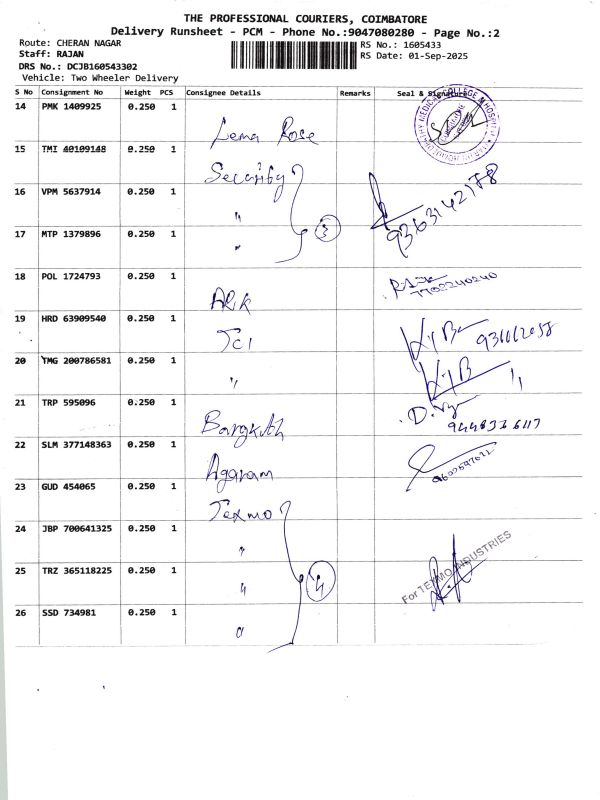 THE PROFESSIONAL COURIERS, COIMBATORE
Delivery Runsheet - PCM - Phone No.:9047080280 - Page No.:2
Route: CHERAN NAGAR
Staff: RAJAN
DRS No.: DCJB160543302
Vehicle: Two Wheeler Delivery
RS No.: 1605433
RS Date: 01-Sep-2025
S No Consignment No Weight PCS Consignee Details Remarks Seal & Signature
14 PMK 1409925 0.250 1 Lema Rose
15 TMI 40109148 0.250 1 Security
16 VPM 5637914 0.250 1 " 9363142178
17 MTP 1379896 0.250 1 " 3
18 POL 1724793 0.250 1 Ark 7702240240
19 HRD 63909540 0.250 1 TCI
20 TMG 200786581 0.250 1 "
21 TRP 595096 0.250 1
22 SLM 377148363 0.250 1 Agaram
23 GUD 454065 0.250 1 Texmo
24 JBP 700641325 0.250 1 "
25 TRZ 365118225 0.250 1 " 4 For TEXMO INDUSTRIES
26 SSD 734981 0.250 1 "